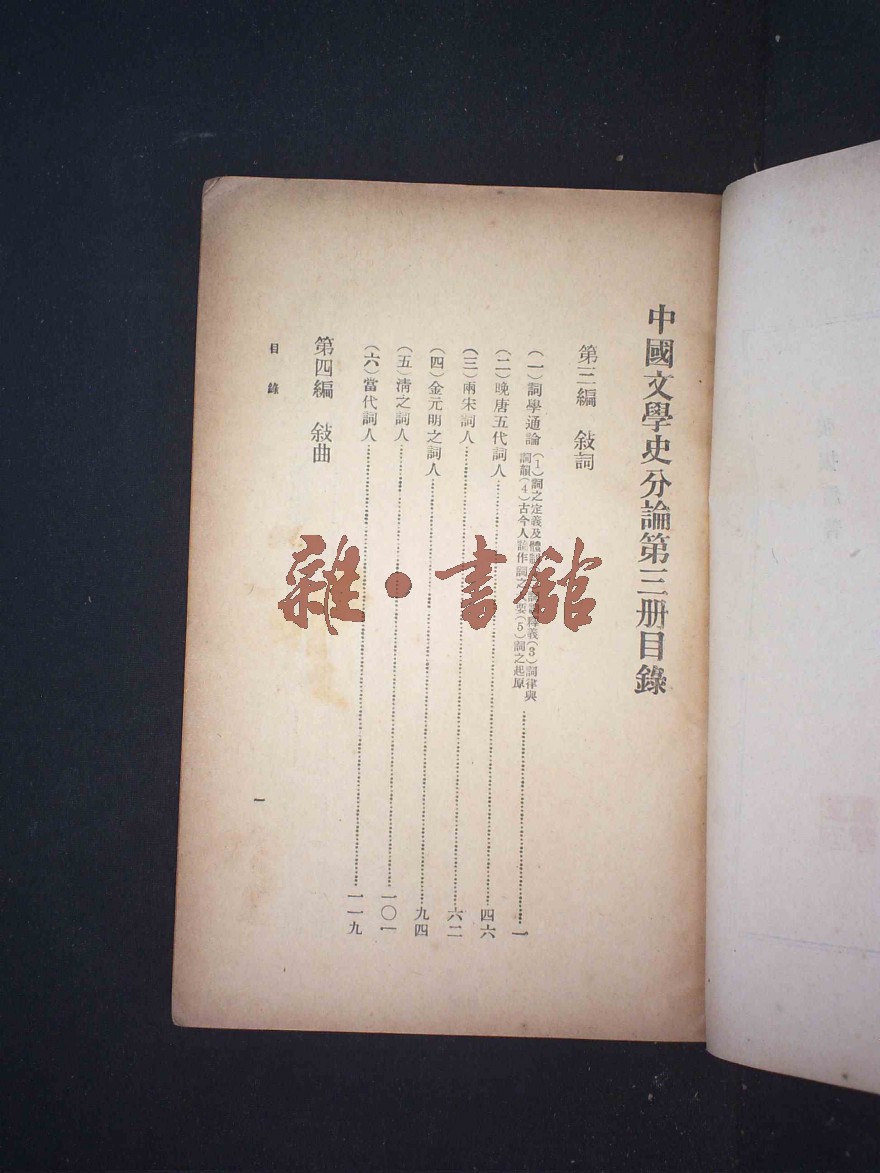 中國文學史分論第三册目錄
第三編　敍詞
(一)詞學通論(1)詞之定義及體制釋義(3)詞律與
詞韻(4)古今人論作詞之要(5)詞之起原……一
(二)晚唐五代詞人……四六
(三)兩宋詞人……六二
(四)金元明之詞人……九四
(五)清之詞人……一〇一
(六)當代詞人……一一九
第四編　敍曲
目錄
一
雜·書館